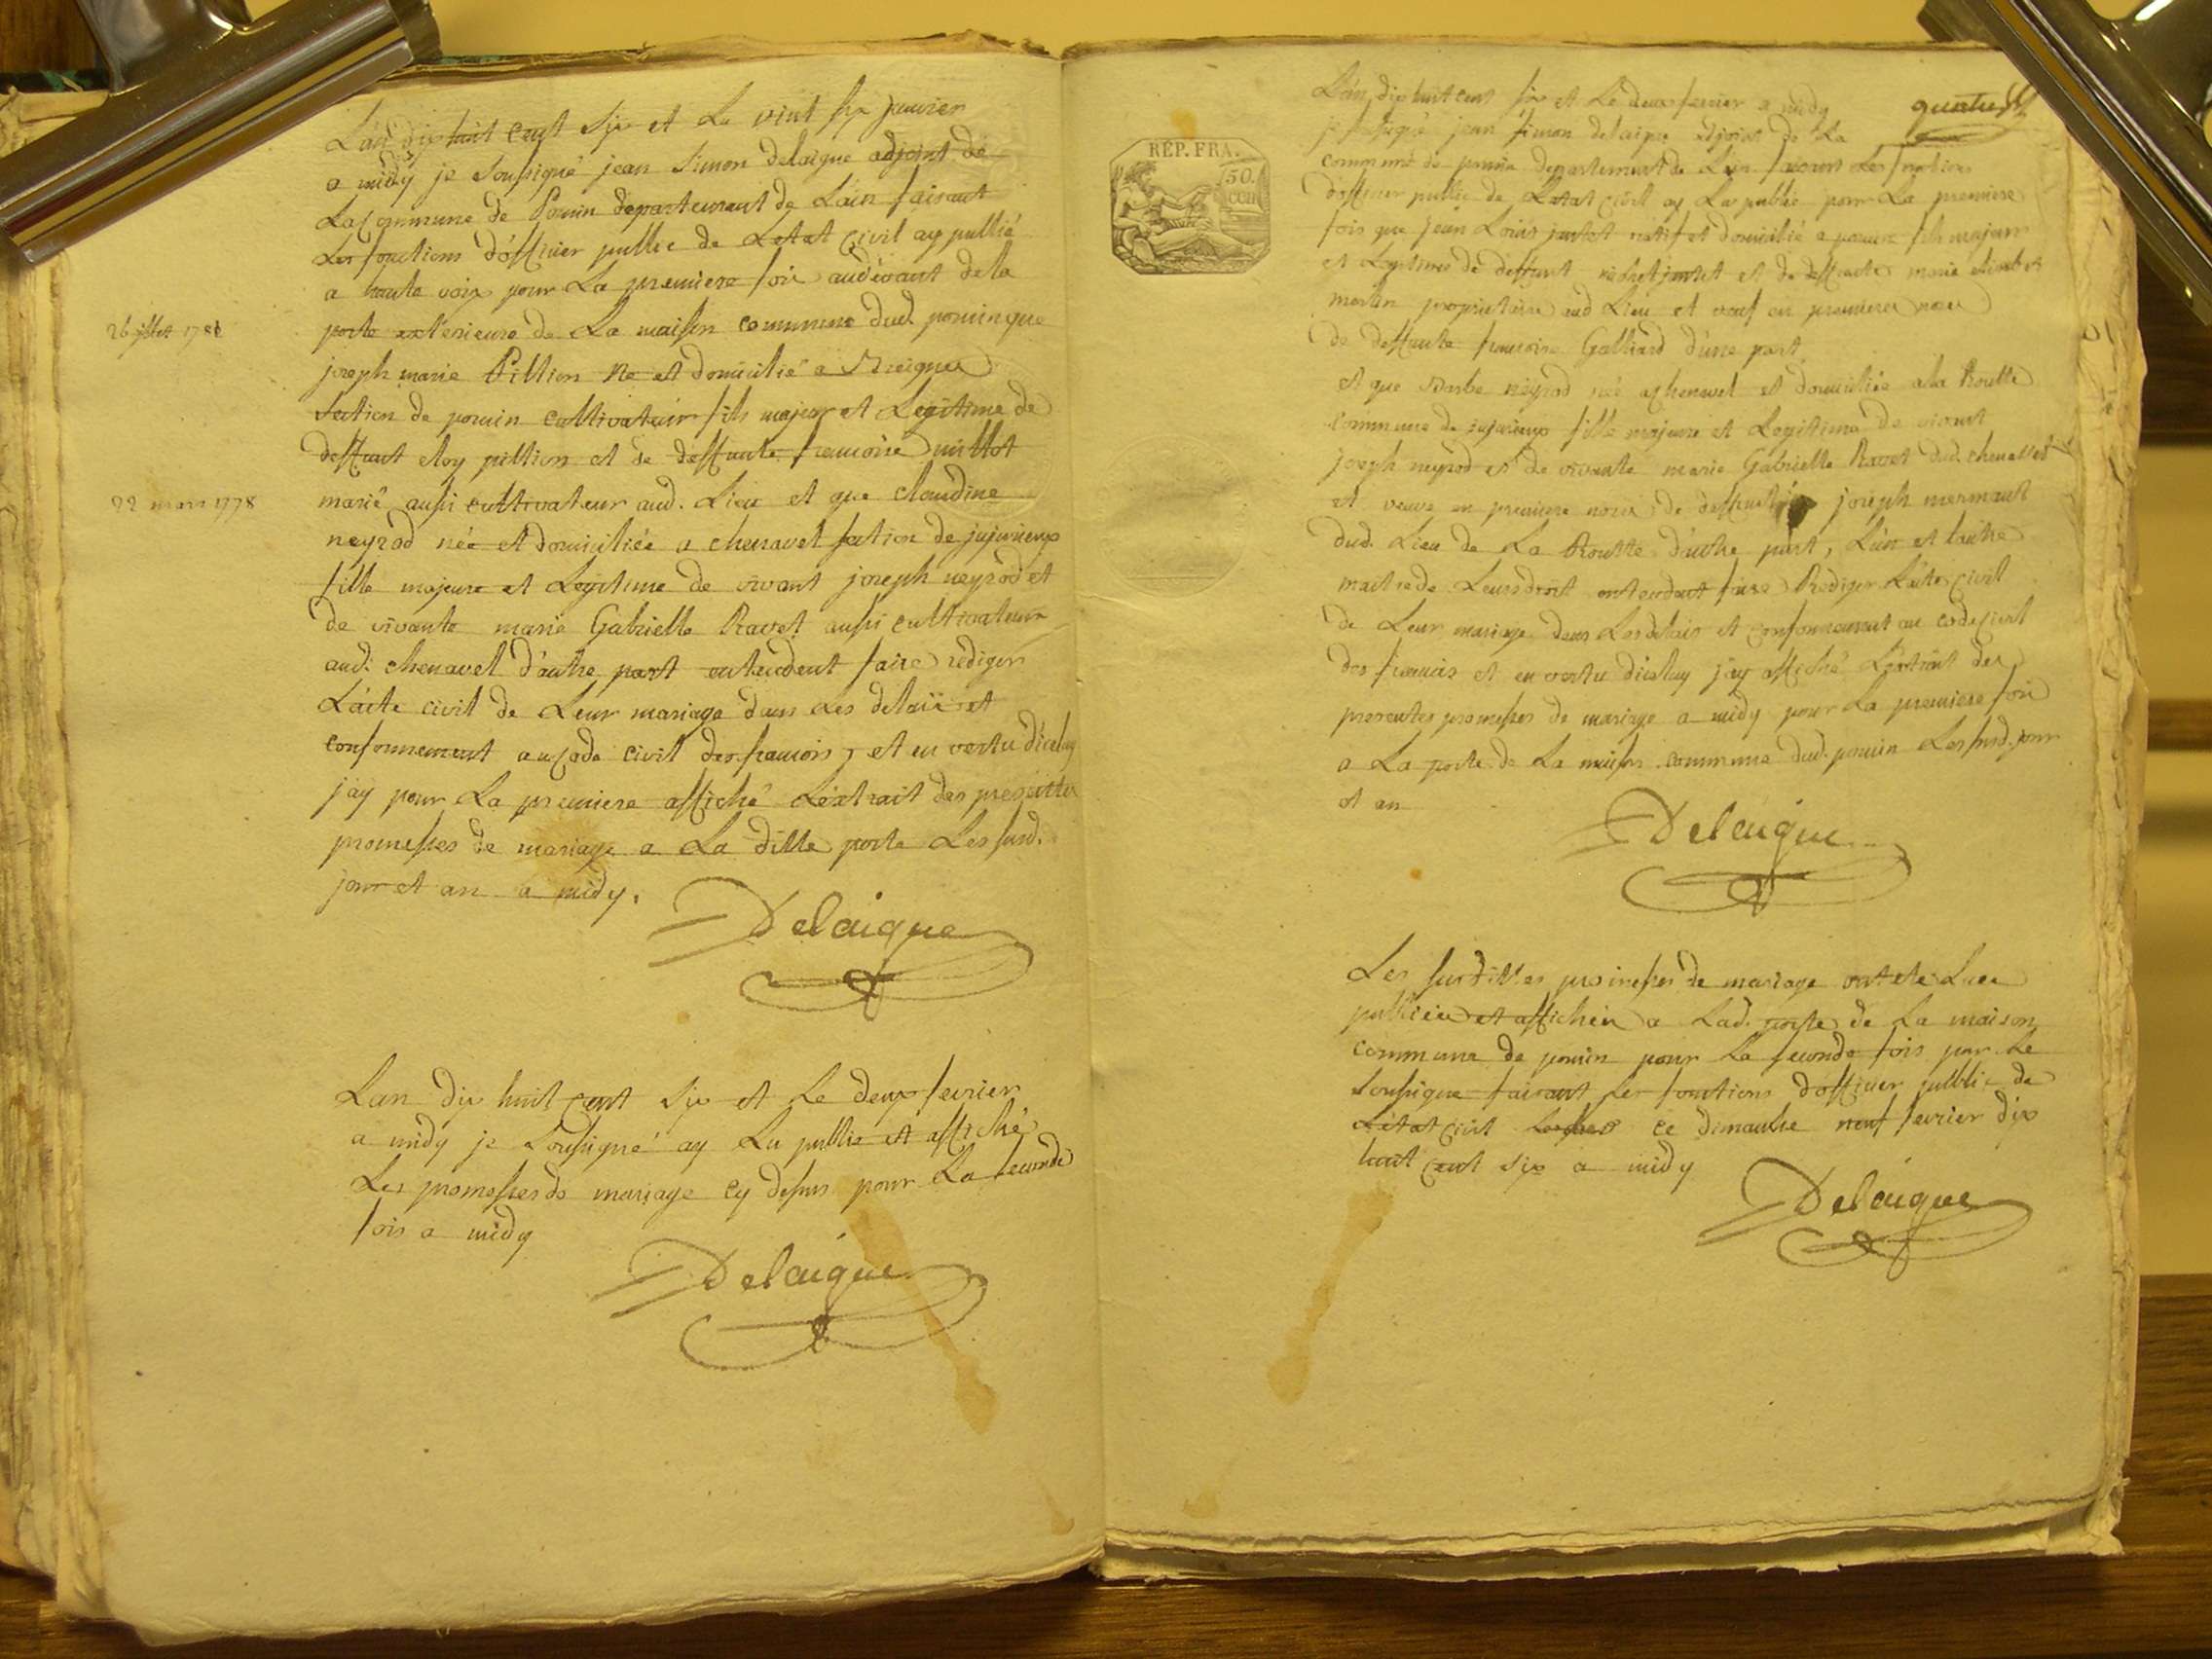 L'an dix huit cent six et Le vint six janvier
a midy je Soussigné jean Simon delaigue adjoint de
La Commune de Poncin departement de L'ain faisant
Les fonctions d'officier public de Letat Civil ay publié
a haute voix pour La premiere fois audevant de la
porte exterieure de La maison commune dud. poncin que
26 jllet 1781
joseph marie Pittion né et domicilié a Breignes
Section de poncin cultivateur fils majeur et Legitime de
deffunt eloy pittion et de deffunte francoise millot
22 mars 1778
marié aussi cultivateur aud. Lieu et que claudine
neyrod née et domiciliée a chenavel section de jujurieux
fille majeure et Legitime de vivant joseph neyrod et
de vivante marie Gabrielle Ravet aussi cultivateur
aud. chenavel d'autre part entendent faire rediger
L'acte civil de Leur mariage dans Les delais et
conformement au code civil des francois, et en vertu diceluy
j'ay pour La premiere affiché Lextrait des presentes
promesses de mariage a La ditte porte Les susd.
jour et an a midy.
Delaigue
Lan dix huit cent Six et Le deux fevrier
a midy je Soussigné ay Lu publié et affiché
Les promesses de mariage cy dessus pour La seconde
fois a midy
Delaigue
REP. FRA.
50.
cen
L'an dix huit cent six et Le deux fevrier a midy
je soussigné jean simon delaigue adjoint de La
commune de poncin departement de Lain faisant Les fonctions
d'officier public de Letat civil ay Lu publié pour La premiere
fois que jean Louis jantet natif et domicilié a poncin fils majeur
et Legitime de deffunt jantet et de deffunte marie
merlin proprietaire aud Lieu et veuf en premiere noce
de deffunte francoise Galliard d'une part,
et que Barbe neyrod née a chenavel et domiciliée a la Routte
Commune de jujurieux fille majeure et Legitime de vivant
joseph neyrod et de vivante marie Gabrielle Ravet dud. chenavel
et veuve en premiere noce de deffunt joseph mermant
dud. Lieu de La Routte d'autre part, L'un et l'autre
maitre de Leurs droit entendant faire Rediger L'acte civil
de Leur mariage dans Les delais et conformement au code civil
des francais et en vertu diceluy j'ay affiché L'extrait des
presentes promesses de mariage a midy pour La premiere fois
a La porte de La maison commune dud. poncin Les susd. jour
et an
Delaigue
Les susdittes promesses de mariage ont ete Lues
publiées et affichées a Lad. porte de La maison
commune de poncin pour La seconde fois par Le
soussigné faisant Les fonctions d'officier public de
Létat civil ce dimanche neuf fevrier dix
huit cent six a midy
Delaigue